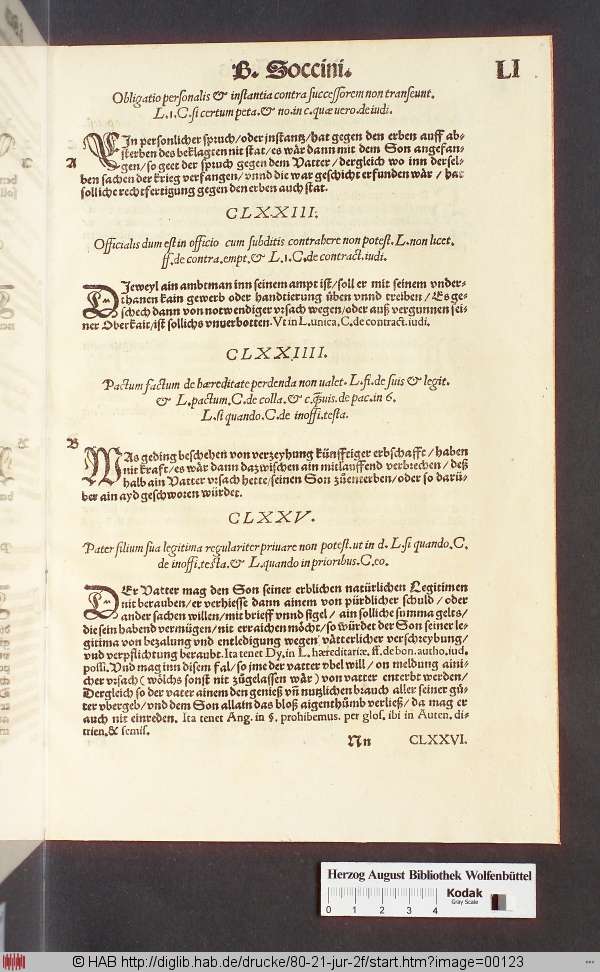 B. Soccini. LI
Obligatio personalis & instantia contra successorem non transeunt.
L.1.C.si certum peta.& no.in c.quæ uero.de iudi.
A
EIn personlicher spruch/oder instantz/hat gegen den erben auff ab-
sterben des beklagten nit stat/es wår dann mit dem Son angefan-
gen/so geet der spruch gegen dem Vatter/dergleich wo inn dersel-
ben sachen der krieg verfangen/vnnd die war geschicht erfunden wår/hat
solliche rechtfertigung gegen den erben auch stat.
CLXXIII.
Officialis dum est in officio cum subditis contrahere non potest. L.non licet.
ff.de contra.empt.& L.1.C.de contract.iudi.
DJeweyl ain ambtman inn seinem ampt ist/soll er mit seinem vnder-
thanen kain gewerb oder handtierung üben vnnd treiben/Es ge-
schech dann von notwendiger vrsach wegen/oder auß vergunnen sei-
ner Oberkait/ist sollichs vnuerbotten. Vt in L.unica.C.de contract.iudi.
CLXXIIII.
Pactum factum de hæreditate perdenda non ualet. L.fi.de suis & legit.
& L.pactum.C.de colla.& c.quis.de pac.in 6.
L.si quando.C.de inoffi.testa.
B
WAs geding beschehen von verzeyhung künfftiger erbschafft/haben
nit kraft/es wår dann dazwischen ain mitlauffend verbrechen/deß
halb ain Vatter vrsach hette/seinen Son zůenterben/oder so darü-
ber ain ayd geschworen würdet.
CLXXV.
Pater filium sua legitima regulariter priuare non potest.ut in d. L.si quando.C.
de inoffi.testa.& L.quando in prioribus.C.eo.
DEr Vatter mag den Son seiner erblichen natürlichen Legitimen
nit berauben/er verhiesse dann ainem von pürdlicher schuld/oder
ander sachen willen/mit brieff vnnd sigel/ain solliche summa gelts/
die sein habend vermügen/nit erraichen möcht/so würdet der Son seiner le-
gitima von bezalung vnd entledigung wegen våtterlicher verschreybung/
vnd verpflichtung beraubt. Ita tenet Dy.in L. hæreditariæ. ff.de bon.autho.iud.
possi. Vnd mag inn disem fal/so jme der vatter vbel will/on meldung aini-
cher vrsach (wölchs sonst nit zůgelassen wår) von vatter enterbt werden/
Dergleich so der vater ainem den genieß vñ nutzlichen brauch aller seiner gü-
ter vbergeb/vnd dem Son allain das bloß aigenthůmb verließ/da mag er
auch nit einreden. Ita tenet Ang. in §. prohibemus. per glos. ibi in Auten. di-
trien.& semis.
Nn CLXXVI.
Herzog August Bibliothek Wolfenbüttel
0 1 2 3 4
Kodak
Gray Scale
© HAB http://diglib.hab.de/drucke/80-21-jur-2f/start.htm?image=00123